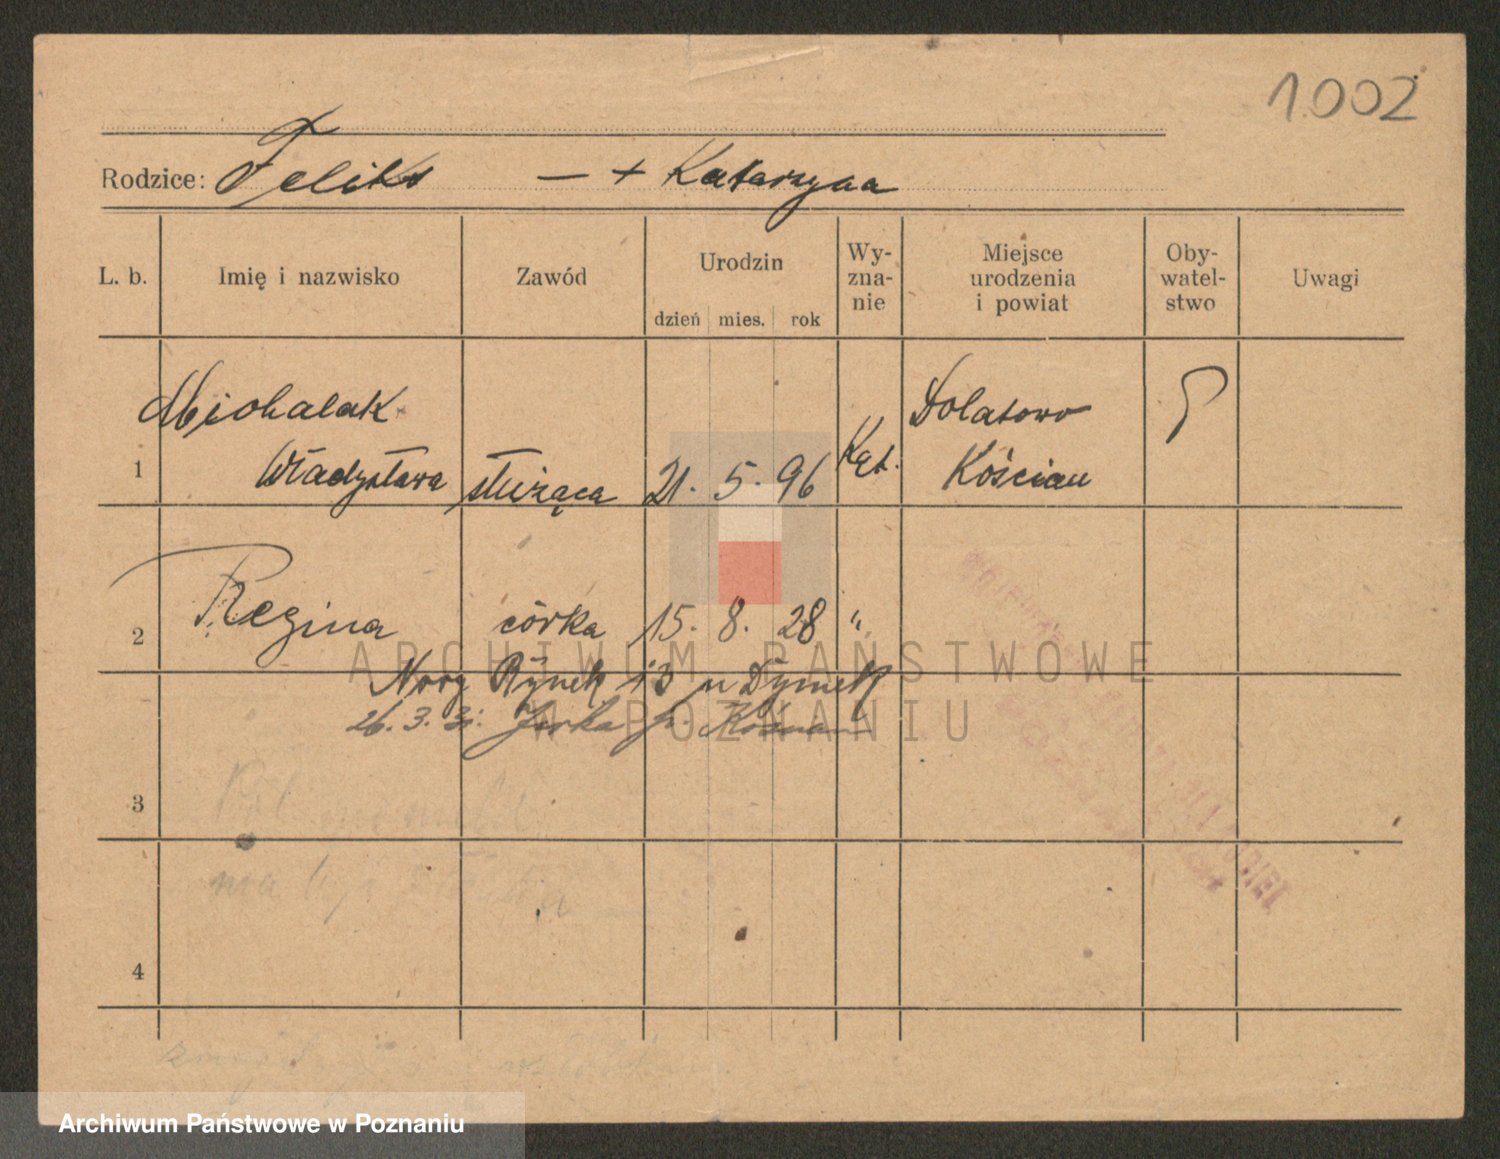 1.002
Rodzice: Feliks — + Katarzyna
L. b. Imię i nazwisko Zawód Urodzin dzień mies. rok Wy-zna-nie Miejsce urodzenia i powiat Oby-watel-stwo Uwagi
Michalak Dolatowo P
1 Władysława służąca 21. 5. 96 Kat. Kościan
2 Regina córka 15. 8. 28 "
Nowy Rynek 13 u Dymek
26. 3. 31. Jerka p.
3
4
ARCHIWUM PAŃSTWOWE
W POZNANIU
Archiwum Państwowe w Poznaniu